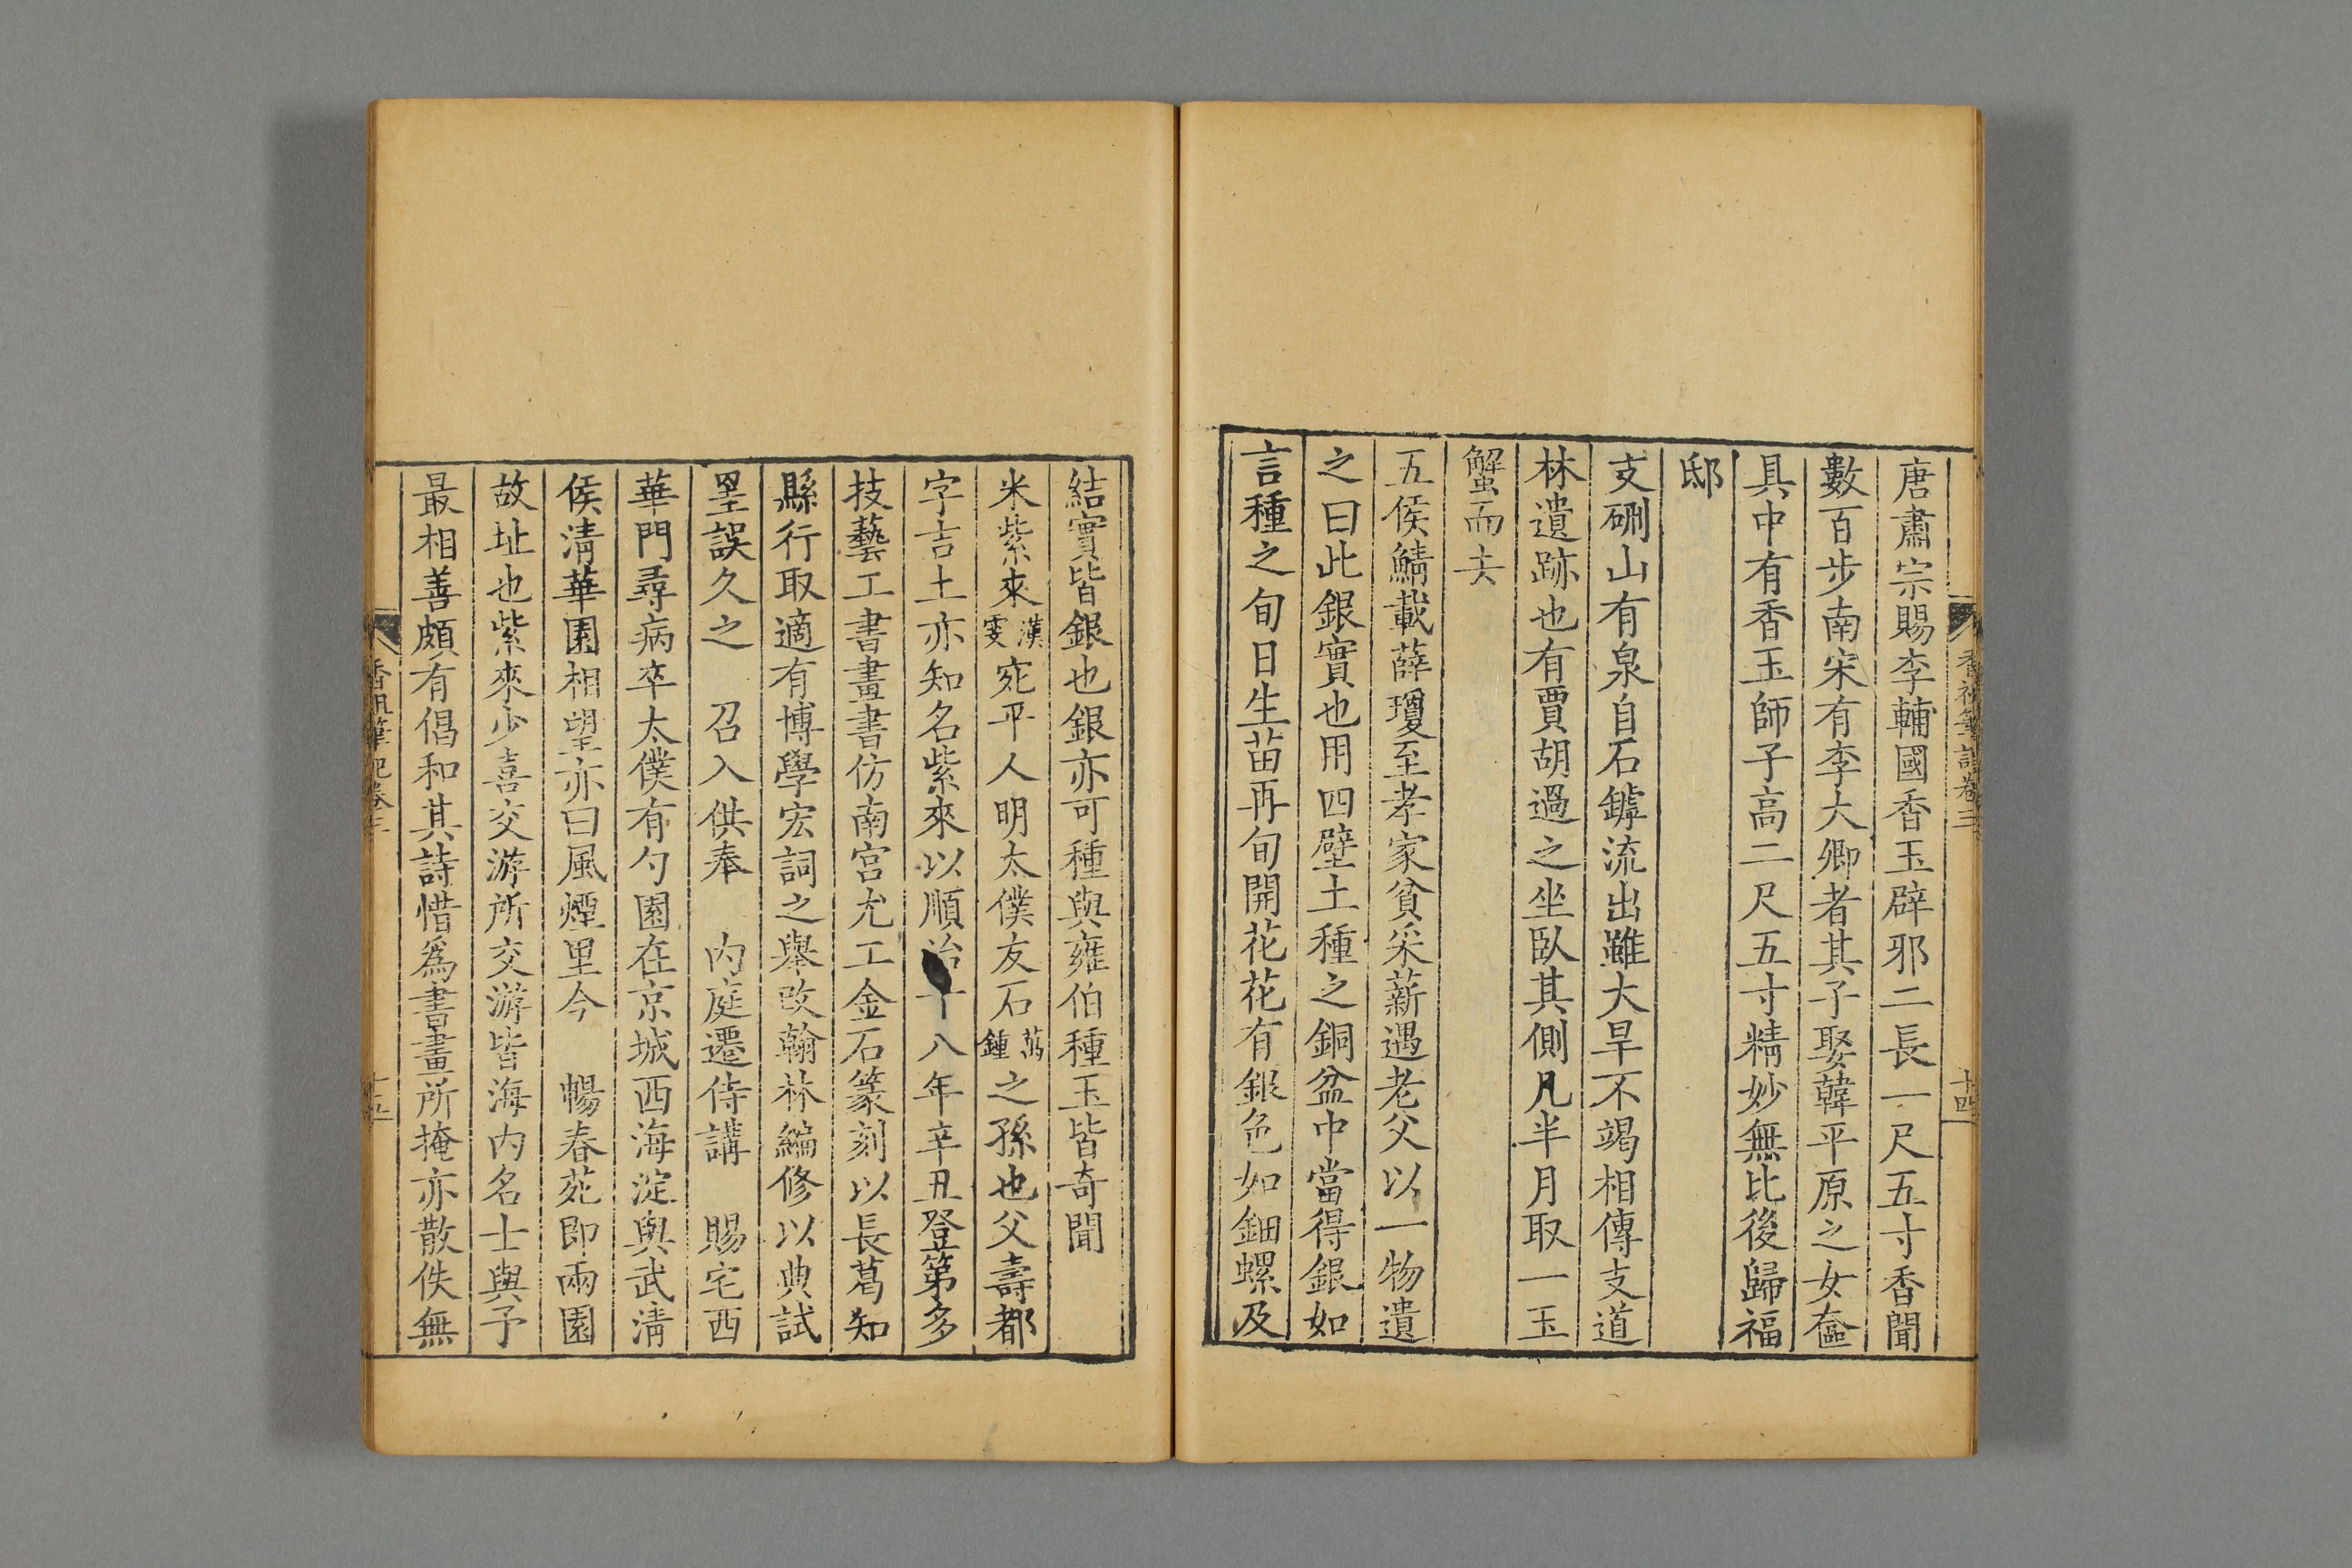 唐肅宗賜李輔國香玉辟邪二長一尺五寸香聞
數百步南宋有李大卿者其子娶韓平原之女奩
具中有香玉師子高二尺五寸精妙無比後歸福
邸
支硎山有泉自石罅流出雖大旱不竭相傳支道
林遺跡也有賈胡過之坐臥其側凡半月取一玉
蟹而去
五侯鯖載薛瓊至孝家貧采薪遇老父以一物遺
之曰此銀實也用四壁土種之銅盆中當得銀如
言種之旬日生苗再旬開花花有銀色如鈿螺及
香祖筆記卷三
十四
結實皆銀也銀亦可種與雍伯種玉皆奇聞
米紫來漢雯宛平人明太僕友石萬鍾之孫也父壽都
字吉土亦知名紫來以順治十八年辛丑登第多
技藝工書畫書仿南宮尤工金石篆刻以長葛知
縣行取適有博學宏詞之舉改翰林編修以典試
罣誤久之 召入供奉 內庭遷侍講 賜宅西
華門尋病卒太僕有勺園在京城西海淀與武清
侯清華園相望亦曰風煙里今 暢春苑即兩園
故址也紫來少喜交游所交游皆海內名士與予
最相善頗有倡和其詩惜爲書畫所掩亦散佚無
香祖筆記卷三
十五